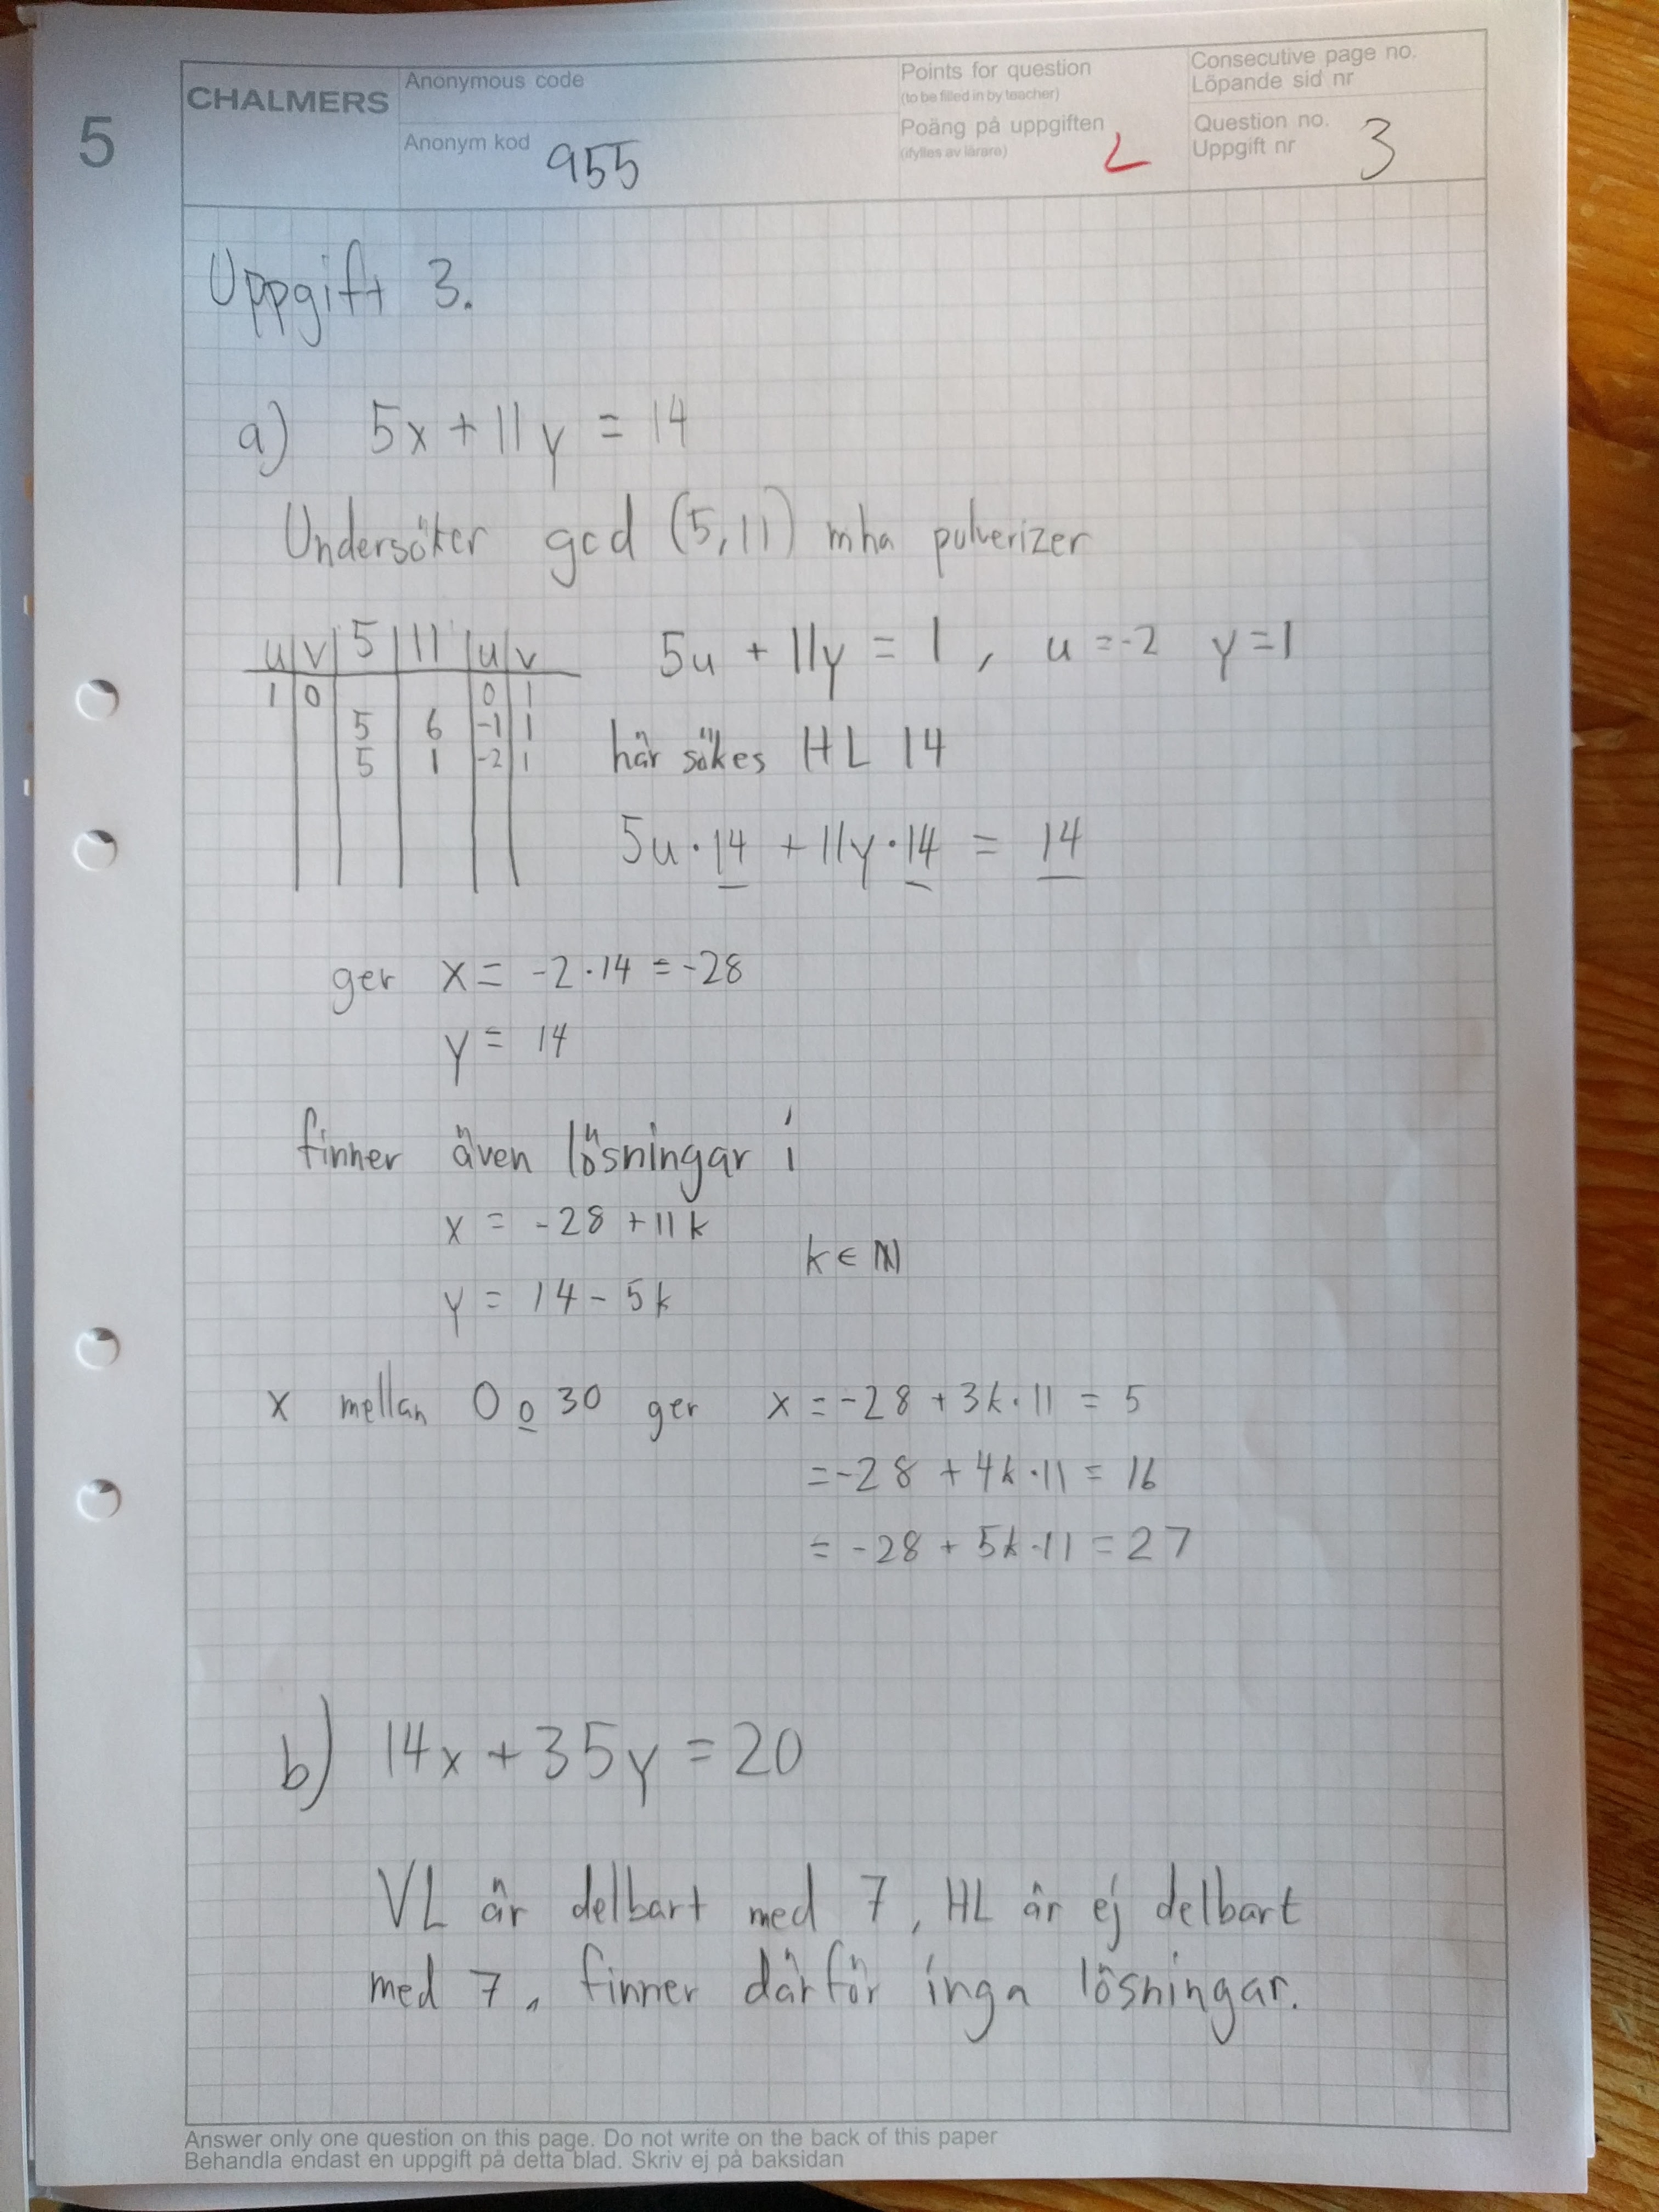 5
CHALMERS
Anonymous code
Anonym kod 955
Points for question
(to be filled in by teacher)
Poäng på uppgiften
(ifylles av lärare)
2
Consecutive page no.
Löpande sid nr
Question no.
Uppgift nr 3
Uppgift 3.
a) 5x + 11y = 14
Undersöker gcd (5,11) mha pulverizer
u | v | 5 | 11 | u | v
1 0 0 1
5 6 -1 1
5 1 -2 1
5u + 11y = 1, u = -2 y = 1
här sökes HL 14
5u · 14 + 11y · 14 = 14
ger x = -2 · 14 = -28
y = 14
finner även lösningar i
x = -28 + 11k
k ∈ ℕ
y = 14 - 5k
x mellan 0 o 30 ger x = -28 + 3k · 11 = 5
= -28 + 4k · 11 = 16
= -28 + 5k · 11 = 27
b) 14x + 35y = 20
VL är delbart med 7, HL är ej delbart
med 7, finner därför inga lösningar.
Answer only one question on this page. Do not write on the back of this paper
Behandla endast en uppgift på detta blad. Skriv ej på baksidan